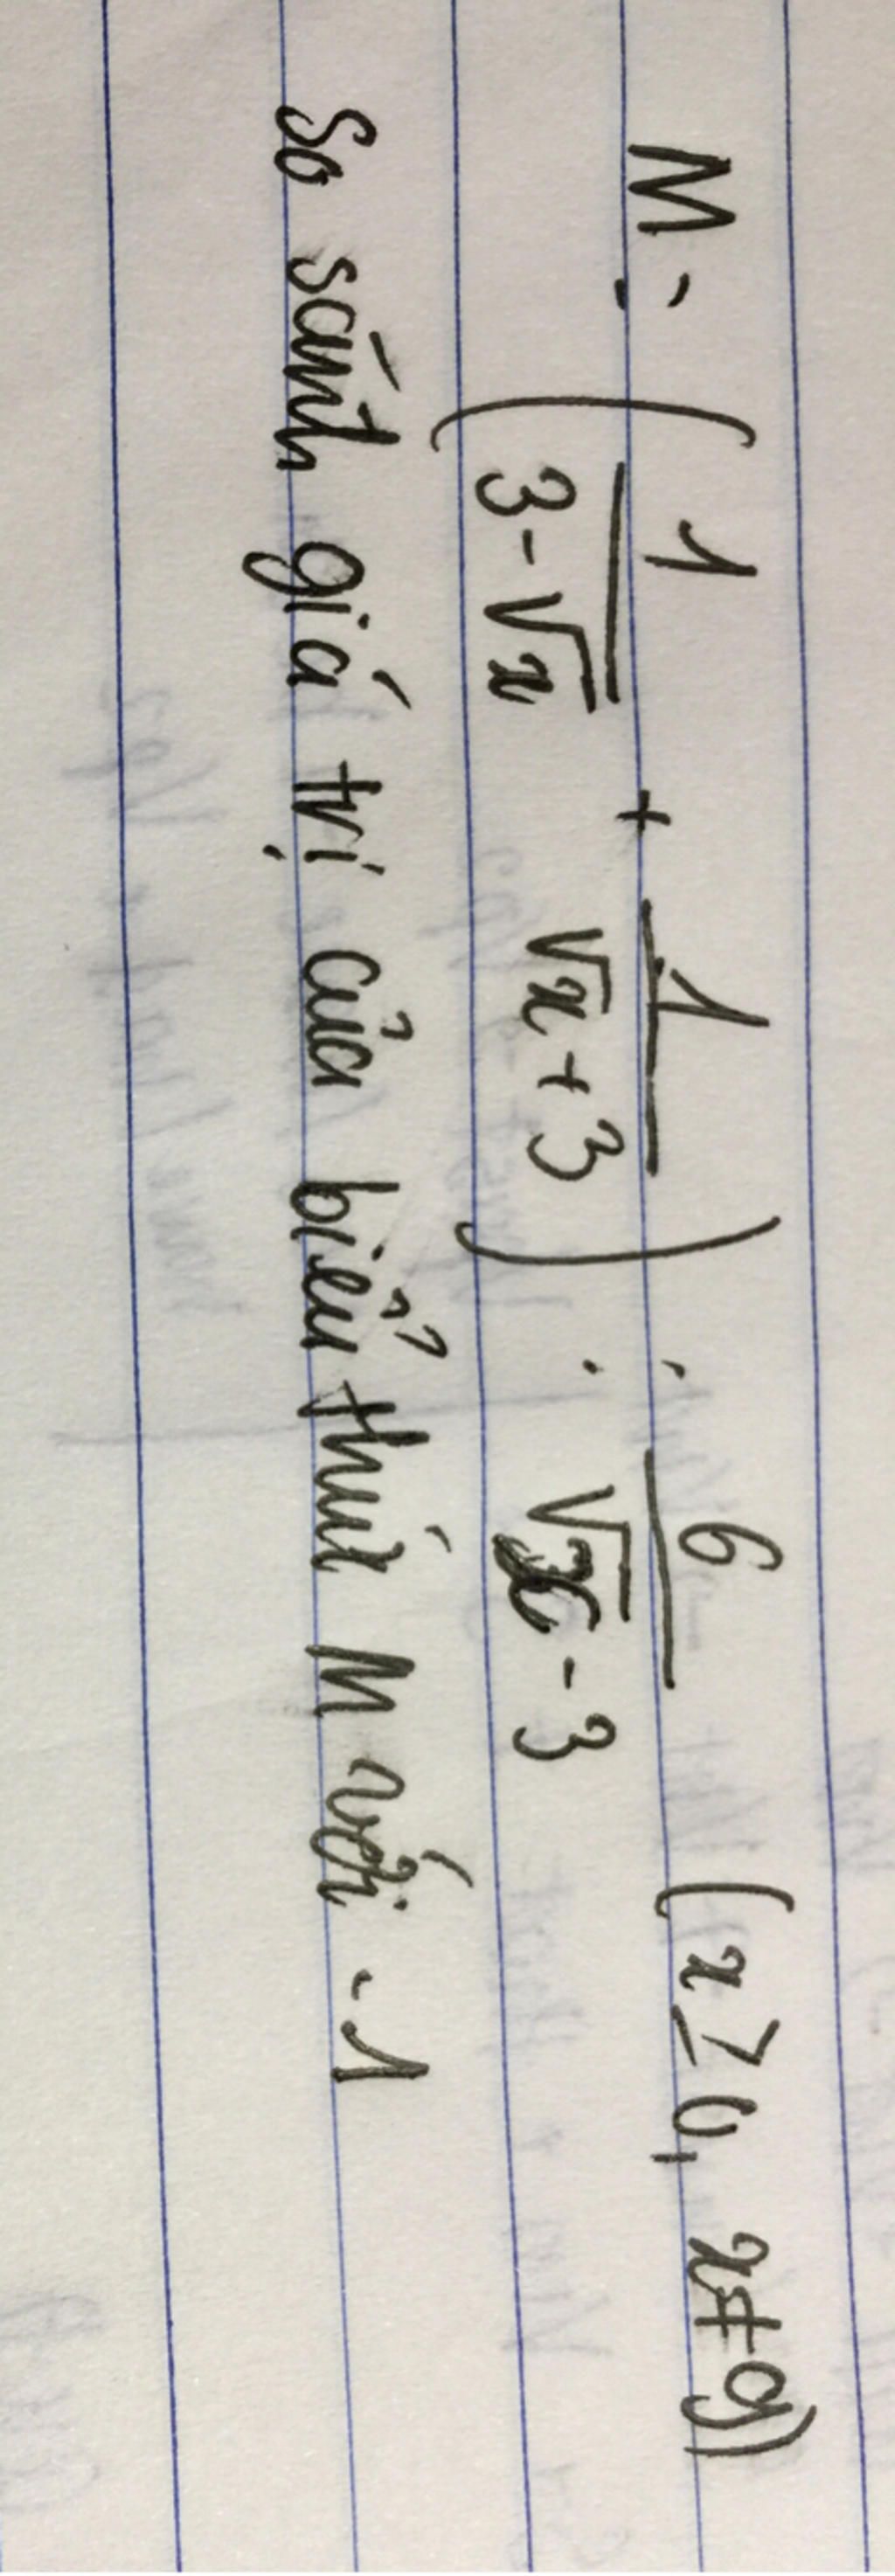 M = ( 1/(3-√x) + 1/(√x+3) ) : 6/(√x-3) (x ≥ 0, x ≠ 9)
So sánh giá trị của biểu thức M với -1